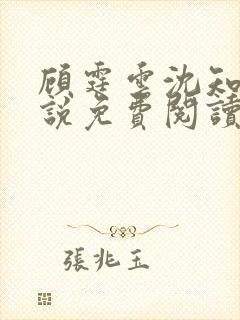 顧霆雲沈知
說免費閱讀
張兆玉